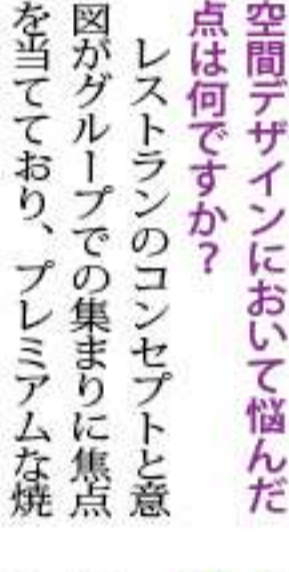 空間デザインにおいて悩んだ
点は何ですか？
レストランのコンセプトと意
図がグループでの集まりに焦点
を当てており、プレミアムな焼